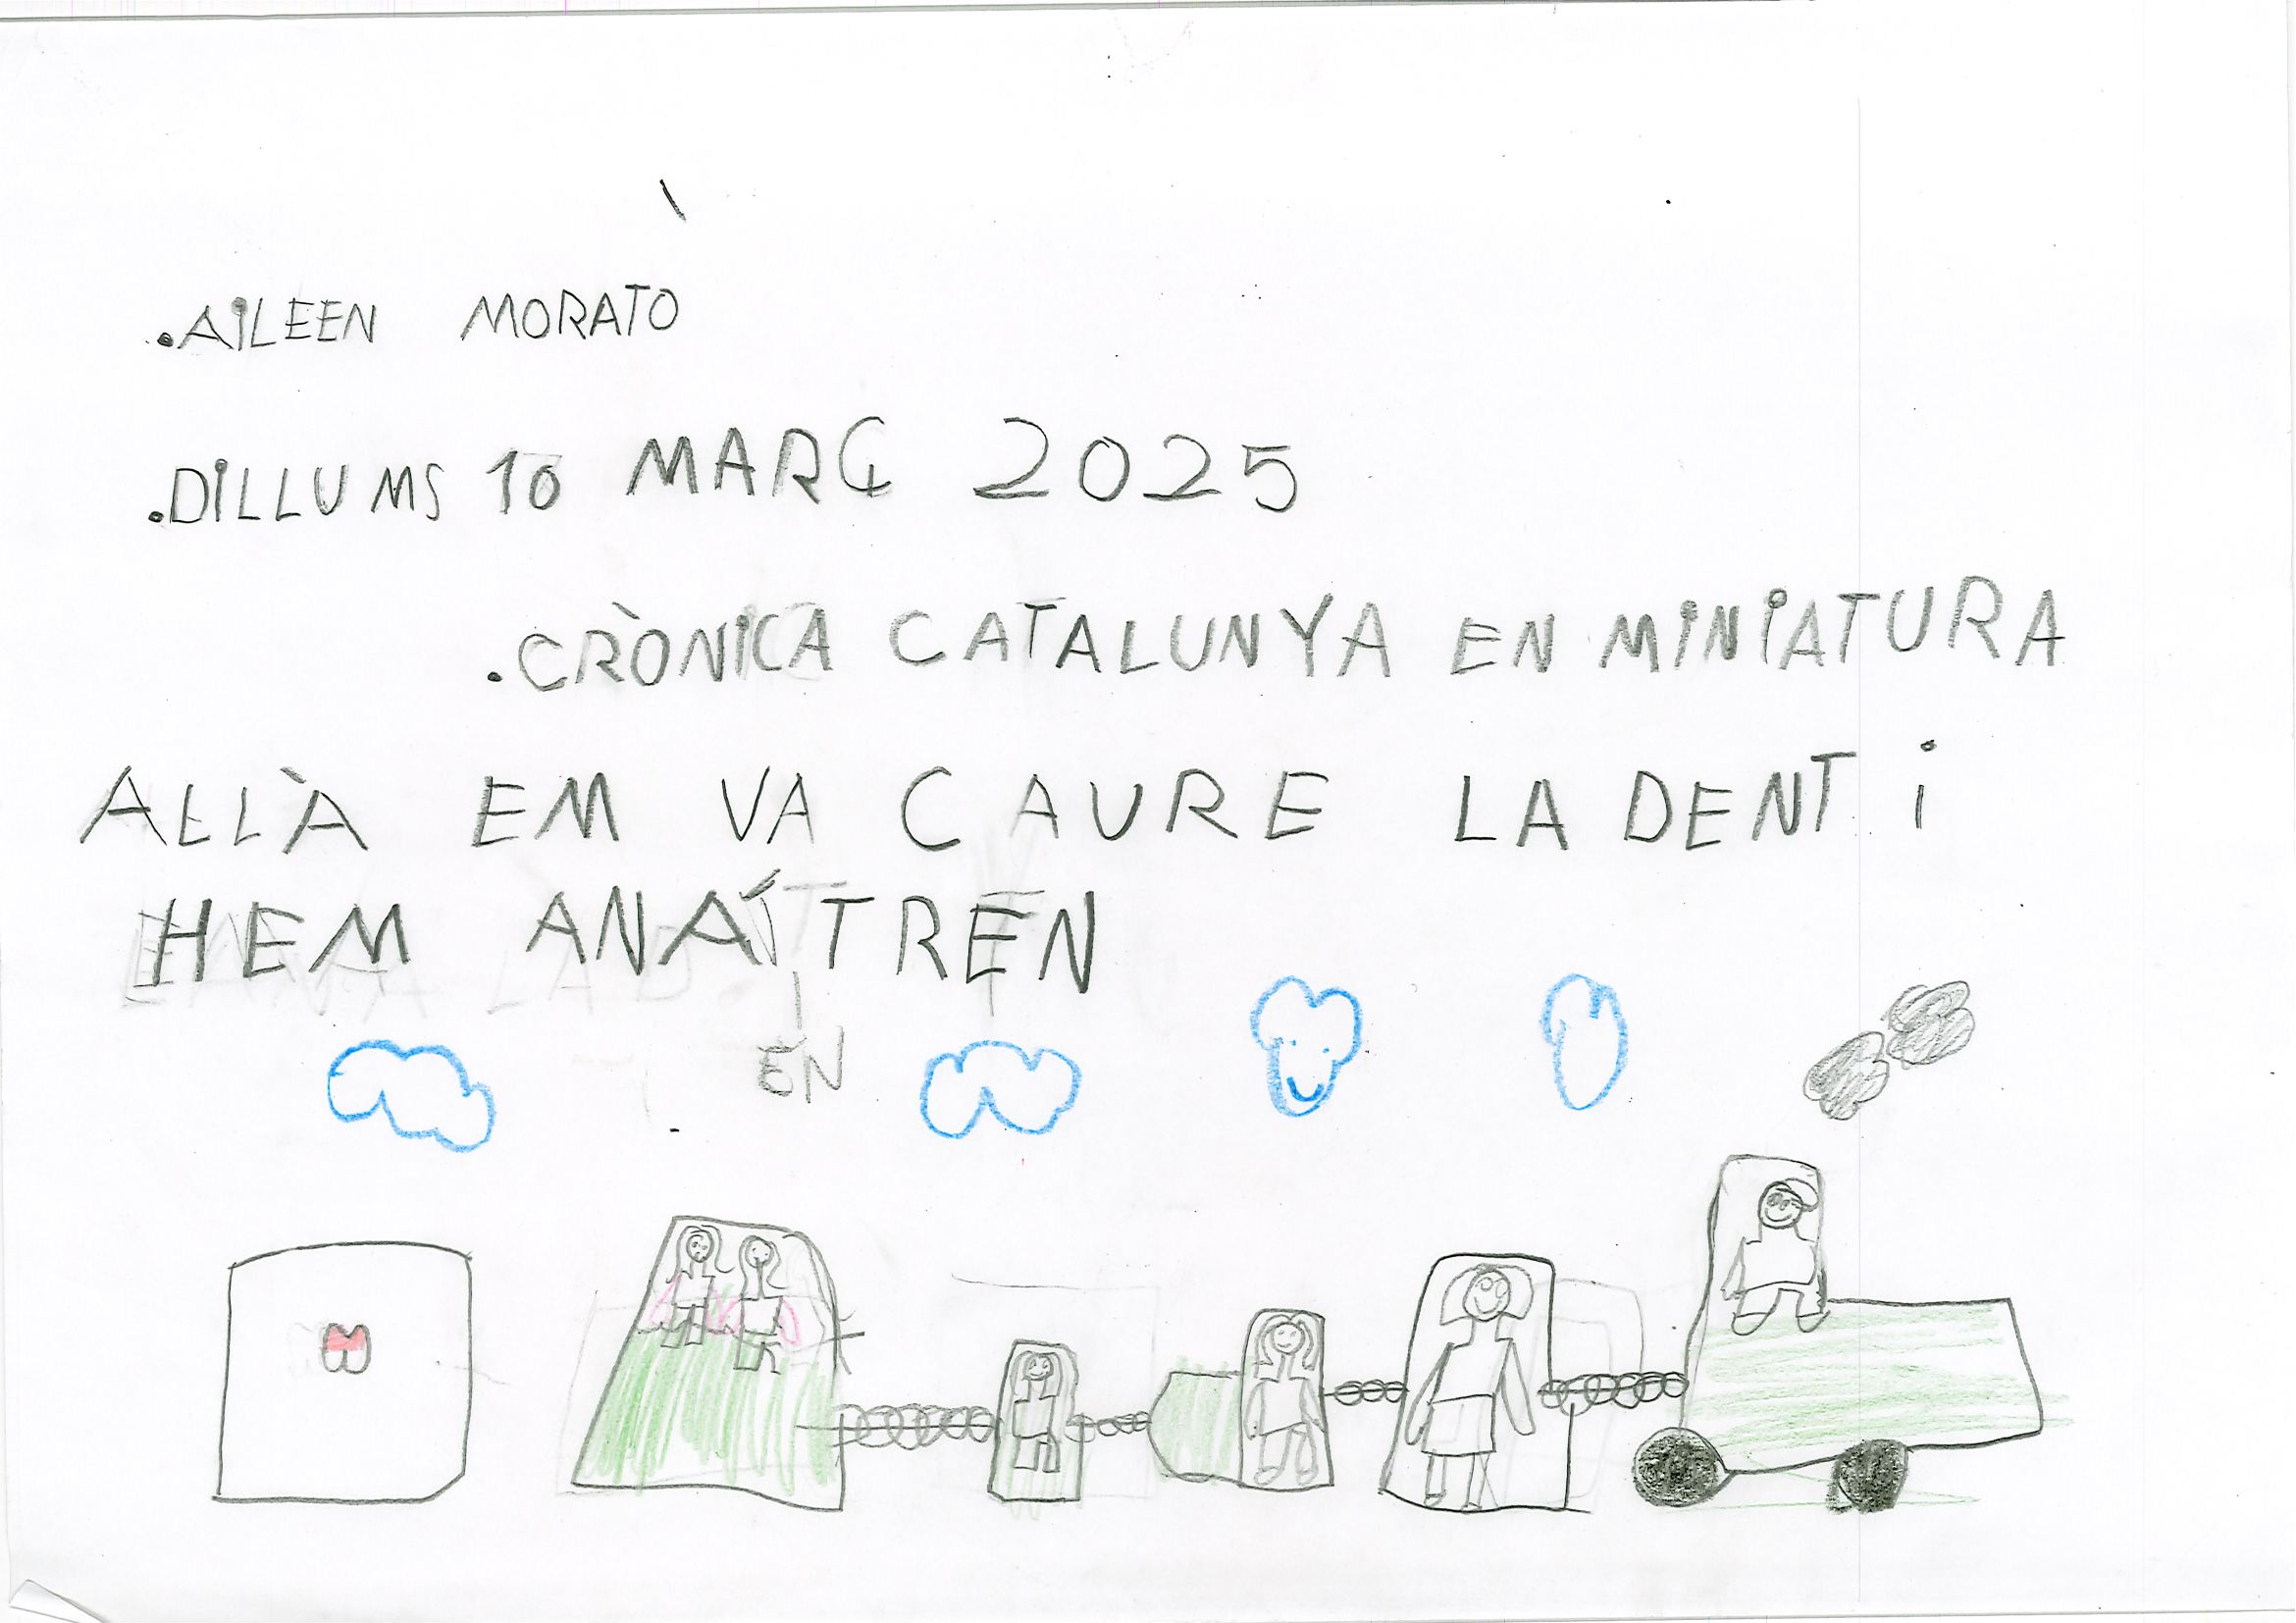 .AiLEEN MORATO
.DiLLUMS 10 MARÇ 2025
.CRÒNiCA CATALUNYA EN MiNiATURA
ALLÀ EM VA CAURE LA DENT i
HEM ANAÍTREN
EN